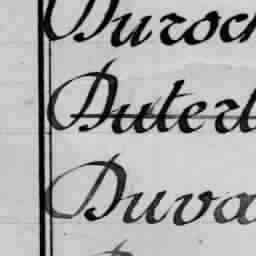 Duroch
Duterl
Duva